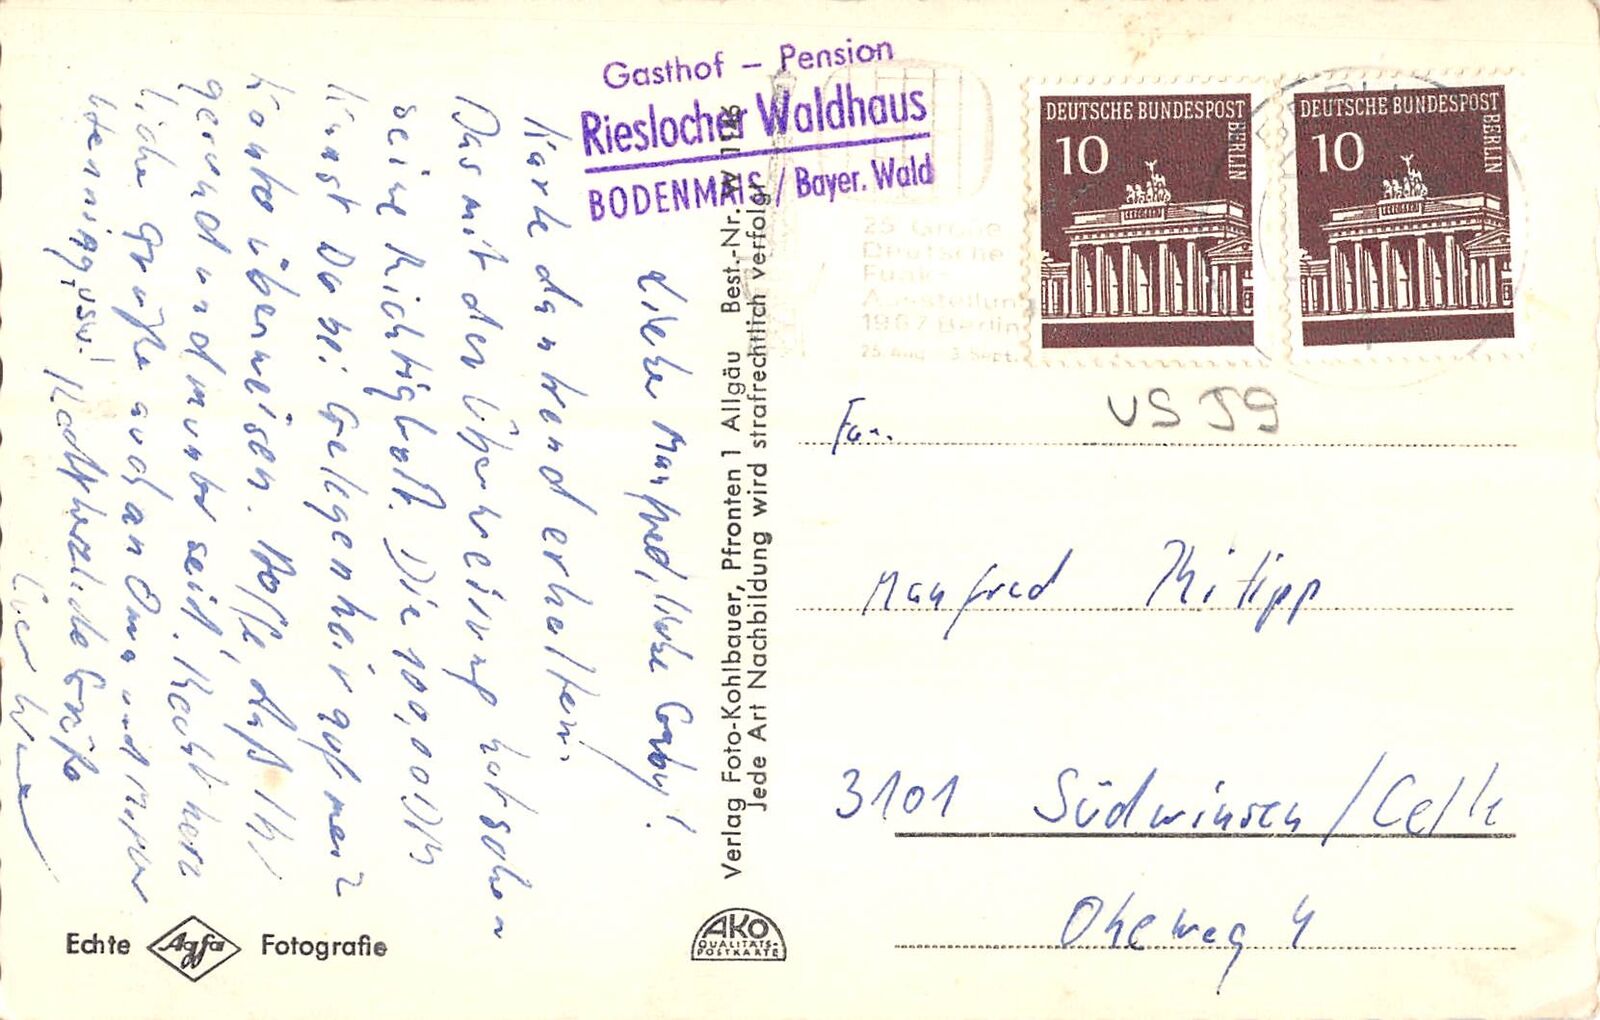 Gasthof – Pension
Rieslocher Waldhaus
BODENMAIS / Bayer. Wald
DEUTSCHE BUNDESPOST
BERLIN
10
DEUTSCHE BUNDESPOST
BERLIN
10
25. Große
Deutsche
Funk-
Ausstellung
1967 Berlin
25. Aug. - 3. Sept.
Liebe Manfred, liebe Gaby!
Karte dankend erhalten.
Das mit der Überweisung hat schon
seine Richtigkeit. Die 100,00 DM
kannst Du bei Gelegenheit auf mein
Konto überweisen. Hoffe, daß Ihr
gesund und munter seid. Recht herz
liche Grüße auch an Oma und
usw.! Kallherzliche Grüße
Euer
Verlag Foto-Kohlbauer, Pfronten 1 Allgäu Best.-Nr. W
Jede Art Nachbildung wird strafrechtlich verfolgt
VS 59
Fam.
Manfred Philipp
3101 Südwinsen / Celle
Okeweg 4
Echte Agfa Fotografie
AKO
QUALITÄTS-
POSTKARTE